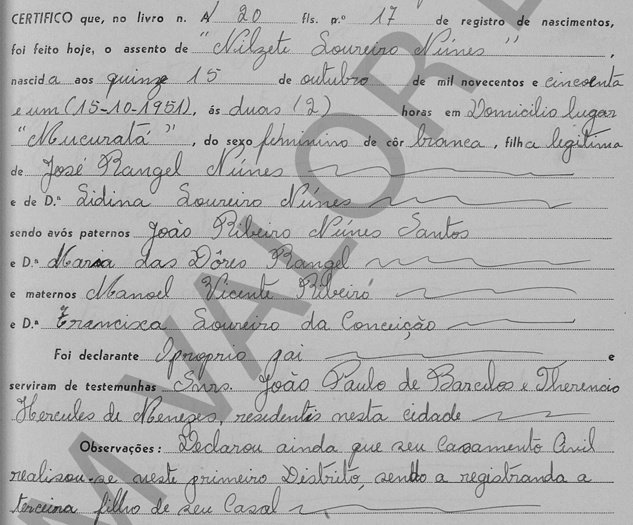 CERTIFICO que, no livro n. A/ 20 fls. n.º 17 de registro de nascimentos,
foi feito hoje, o assento de "Nilzete Loureiro Núnes",
nascida aos quinze 15 de outubro de mil novecentos e cincoenta
e um (15-10-1951), ás duas (2) horas em Domicilio lugar
"Mucuratá", do sexo feminino de côr branca, filha legitima
de José Rangel Núnes
e de D.ª Lidina Loureiro Núnes
sendo avós paternos João Ribeiro Núnes Santos
e D.ª Maria das Dôres Rangel
e maternos Manoel Vicente Ribeiro
e D.ª Francisca Loureiro da Conceição
Foi declarante O proprio pai e
serviram de testemunhas Snrs. João Paulo de Barcelos e Therencio
Hercules de Menezes, residentes nesta cidade
Observações: Declarou ainda que seu Casamento Civil
realisou-se neste primeiro Distrito, sendo a registranda a
terceira filho de seu Casal
M VALOR